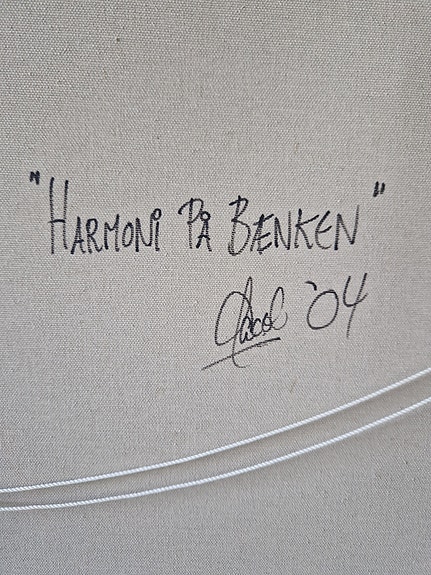 "HARMONI PÅ BÆNKEN"
'04